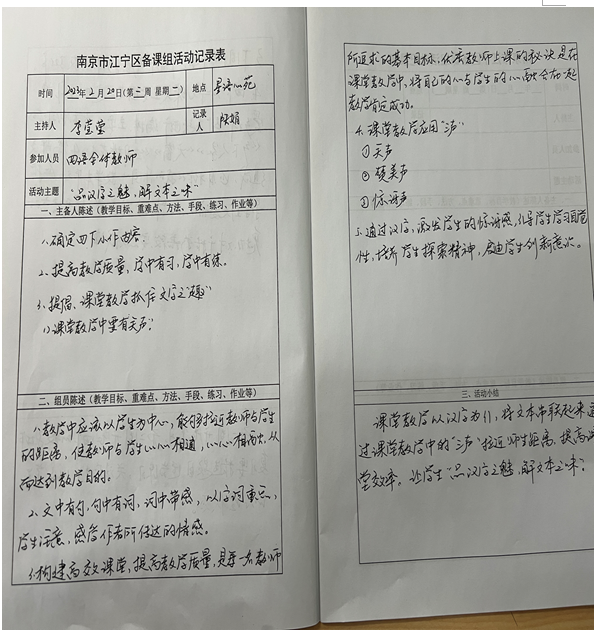 南京市江宁区备课组活动记录表
时间
2023年2月20日(第三周 星期二)
地点
主持人
李莹莹
记录人
参加人员
四语全体教师
活动主题
“品汉字之魅,解文本之味”
一、主备人陈述(教学目标、重难点、方法、手段、练习、作业等)
1、确定四下小作内容:
2、提高教学质量,学中有习,学中有练。
3、提倡、课堂教学抓住文字之“魂”
课堂教学中要有天声:
二、组员陈述(教学目标、重难点、方法、手段、练习、作业等)
1、教学中应该以学生为中心,能够拉近教师与学生
的距离,使教师与学生心心相通,心心相印,从
而达到教学目的。
2、文中有句,句中有词,词中带感,以字词重点,
学生注意,感学作者所传达的情感。
构建高效课堂,提高教学质量,是每一名教师
所追求的基本目标,优秀教师上课的秘诀是在
课堂教学中,将自己的心与学生的心融合在一起
教学肯定成功。
4、课堂教学应用“三声”
①天声
②赞美声
③惊讶声
5、通过汉字,激发学生的惊讶感,引导学生学习自觉
性,培养学生探索精神,启迪学生创新意识。
三、活动小结
课堂教学以汉字为门,将文本串联起来通
过课堂教学中的“三声”拉近师生距离,提高课
堂效率。让学生“品汉字之魅,解文本之味”。